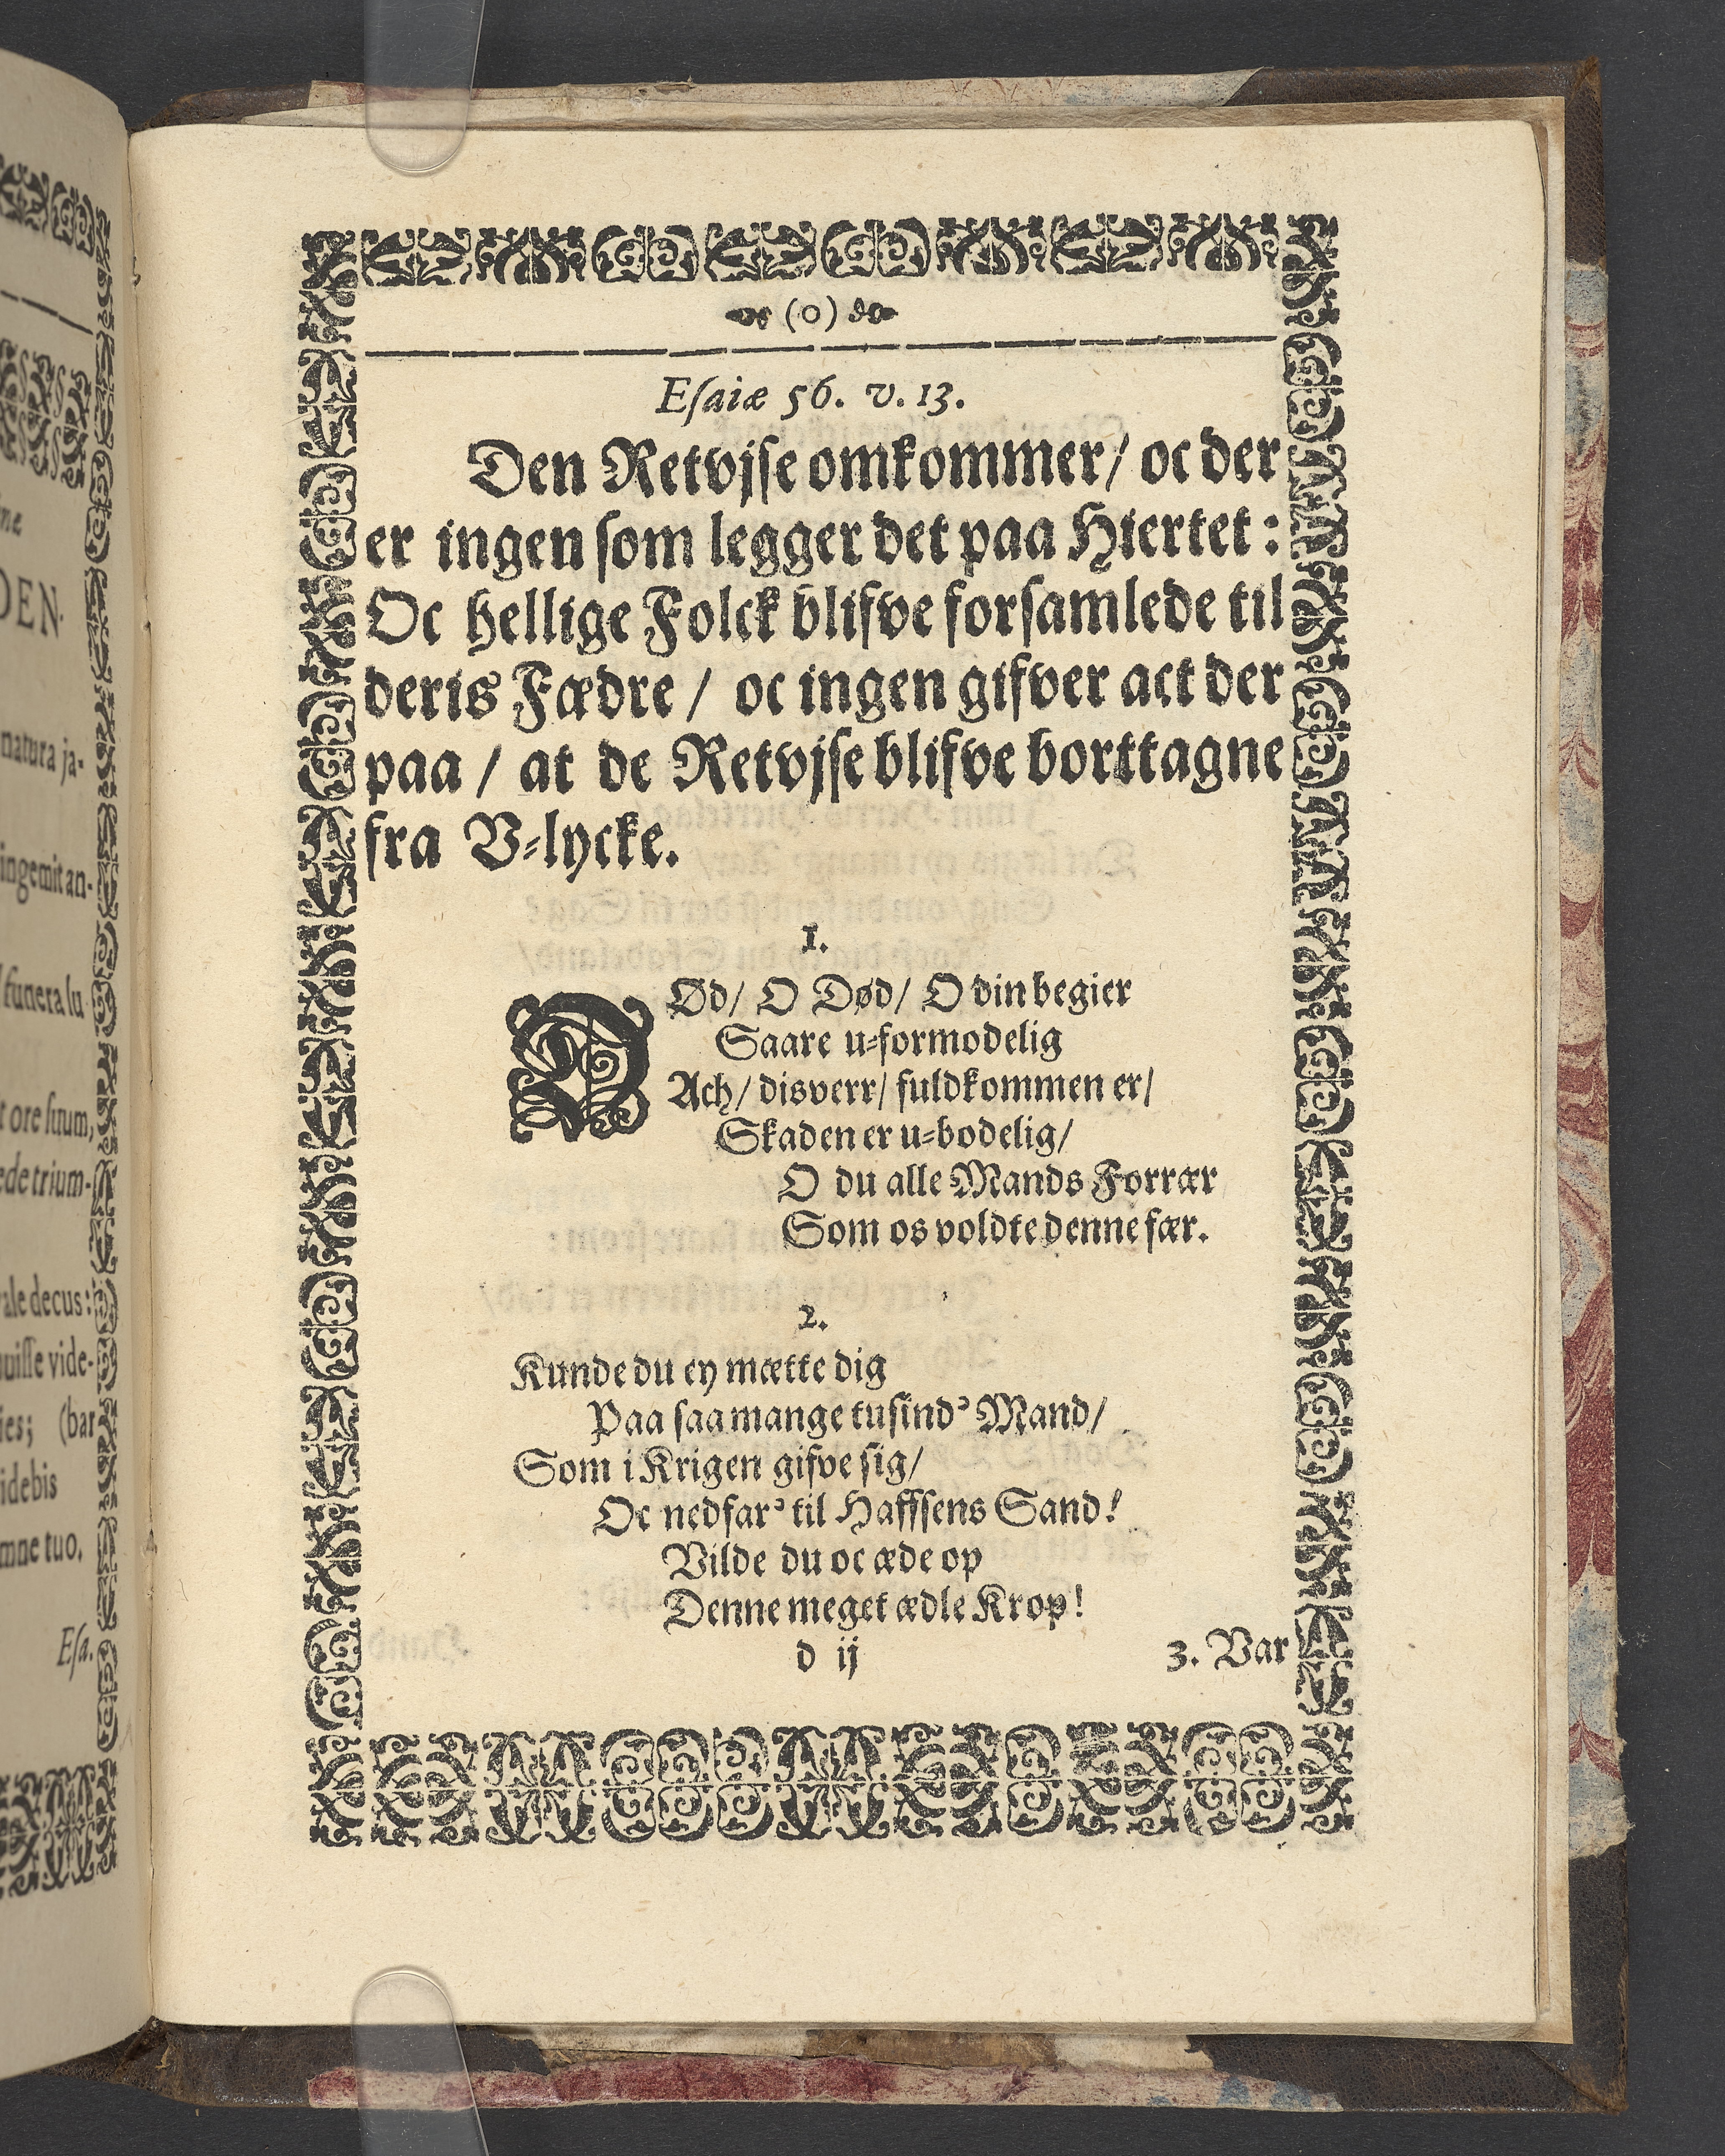 (o)
Esaiæ 56. v. 13.
Den Retvjse omkommer/ oc der
er ingen som legger det paa Hiertet:
Oc hellige Folck blifve forsamlede til
deris Fædre / oc ingen gifver act der
paa / at de Retvjse blifve borttagne
fra V=lycke.
1.
DØd/ O Død/ O din begier
Saare u=formodelig
Ach/ disverr/ fuldkommen er/
Skaden er u=bodelig/
O du alle Mands Forrær
Som os voldte denne fær.
2.
Kunde du ey mætte dig
Paa saa mange tusind' Mand/
Som i Krigen gifve sig/
Oc nedfar' til Haffsens Sand!
Vilde du oc æde op
Denne meget ædle Krop!
d ij
3. Var
DEN.
natura ja-
ingemit an-
funera lu
ore situm,
ede trium-
ale decus:
uisse vide-
(bar
idebis
mne tuo.
Esa.